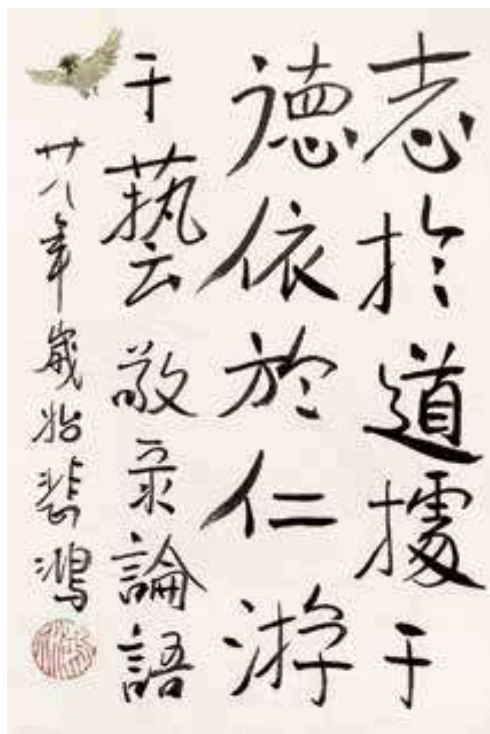 志於道據于
德依於仁游
于藝敬录論語
廿八年歲始悲鴻